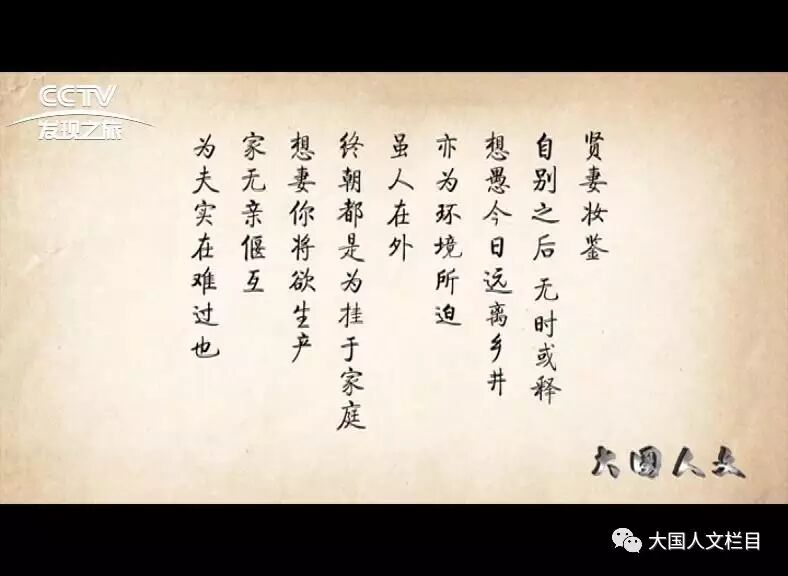 CCTV
发现之旅
贤妻妆鉴
自别之后 无时或释
想愚今日远离乡井
亦为环境所迫
虽人在外
终朝都是为挂于家庭
想妻你将欲生产
家无亲偃互
为夫实在难过也
大国人文
大国人文栏目